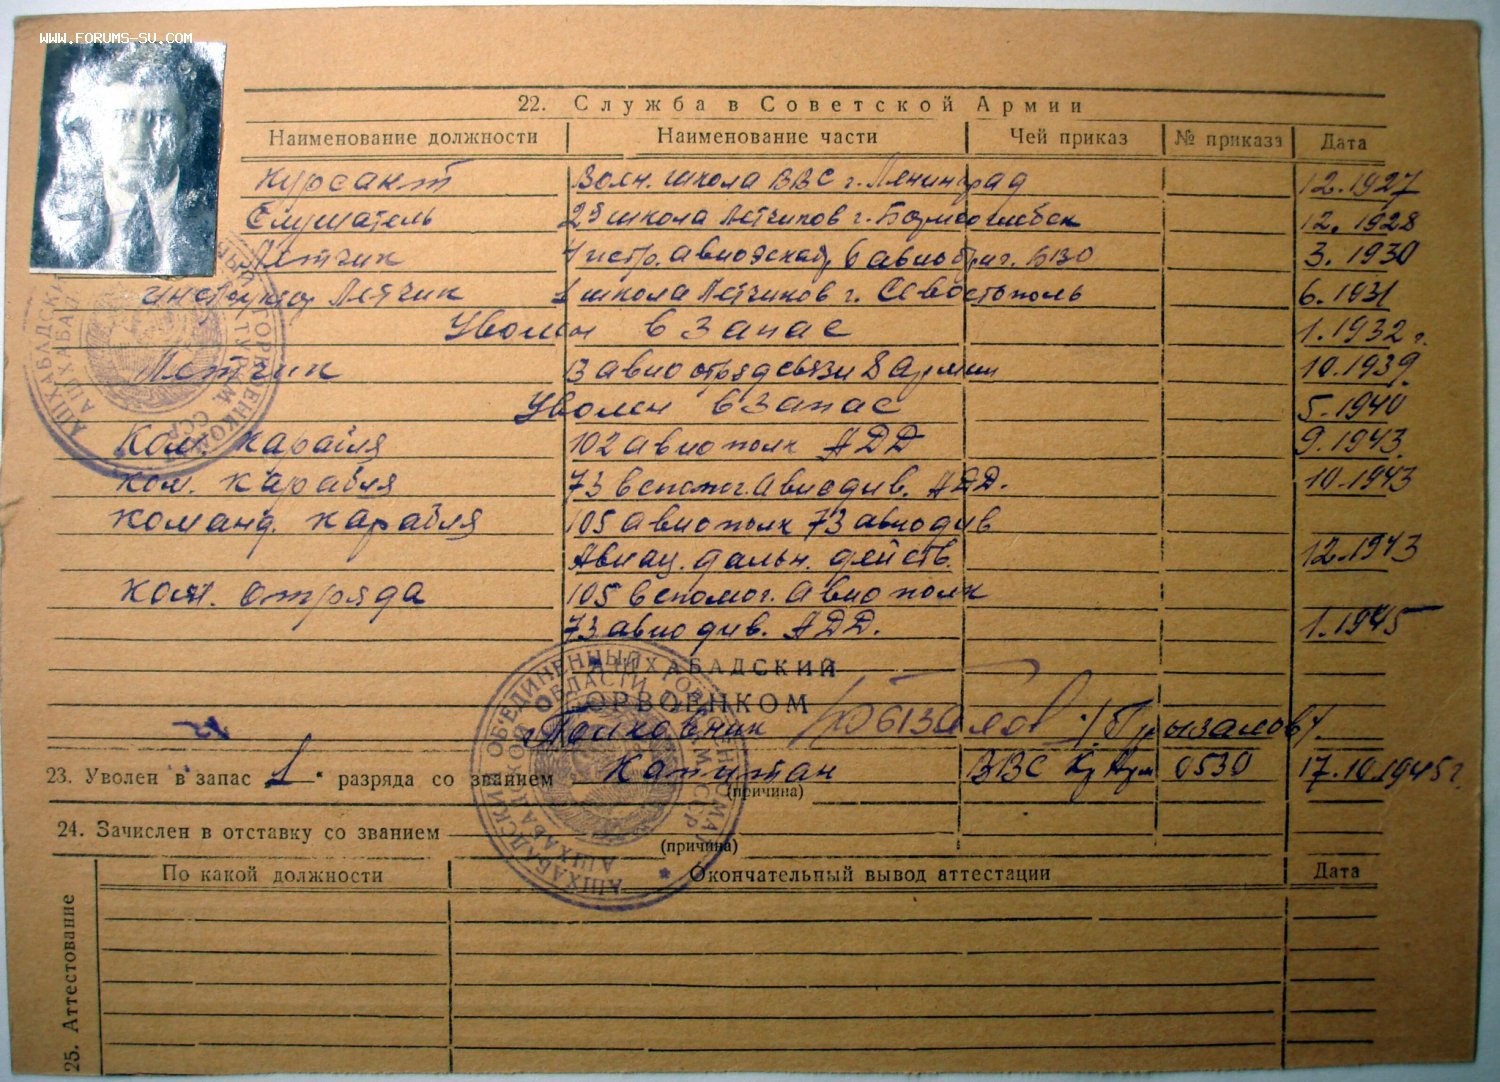 WWW.FORUMS-SU.COM
22. Служба в Советской Армии
Наименование должности Наименование части Чей приказ № приказа Дата
Курсант Воен. школа ВВС г. Ленинград 12.1927
Слушатель 2я школа Летчиков г. Борисоглебск 12.1928
Летчик 6 авиабриг. БВО 3.1930
Инструктор Летчик 1 школа Летчиков г. Севастополь 6.1931
Уволен в запас 1.1932 г.
Летчик 3 авиоотряд связи 8 армии 10.1939
Уволен в запас 5.1940
Ком. карабля 102 авиополк АДД 9.1943
Ком. карабля 73 вспомог. авиодив. АДД. 10.1943
Команд. карабля 105 авиополк 73 авиодив
Авиац. дальн. действ. 12.1943
Ком. отряда 105 вспомог. авиополк
73 авиодив. АДД. 1.1945
АШХАБАДСКИЙ
ГОРВОЕНКОМ
Полковник
23. Уволен в запас 1 разряда со званием Капитан ВВС 0530 17.10.1945 г.
(причина)
24. Зачислен в отставку со званием
(причина)
25. Аттестование
По какой должности Окончательный вывод аттестации Дата